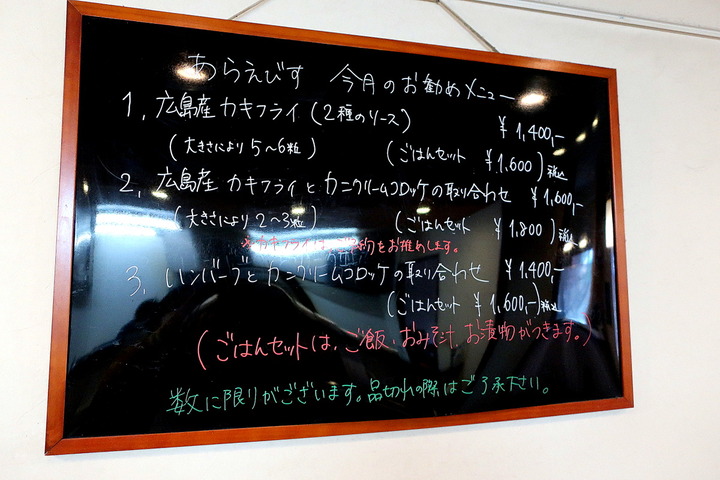 あらえびす 今月のお勧めメニュー
1, 広島産カキフライ (2種のソース) ¥1,400,-
(大きさにより5~6粒) (ごはんセット ¥1,600) 税込
2, 広島産 カキフライとカニクリームコロッケの取り合わせ ¥1,600,-
(大きさにより2~3粒) (ごはんセット ¥1,800) 税込
※カキフライはご予約をお推めします。
3, ハンバーグとカニクリームコロッケの取り合わせ ¥1,400,-
(ごはんセット ¥1,600,-) 税込
(ごはんセットは、ご飯、おみそ汁、お漬物がつきます。)
数に限りがございます。品切れの際はご了承下さい。